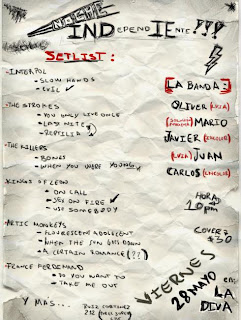 NOCHE
INDEPENDIENTE!!!
SETLIST:
-INTERPOL
- SLOW HANDS
- EVIL ✓
-THE STROKES
- YOU ONLY LIVE ONCE
- LAST NITE
- REPTILIA
-THE KILLERS
- BONES
- WHEN YOU WERE YOUNG
-KINGS OF LEON
- ON CALL
- SEX ON FIRE ✓
- USE SOMEBODY
-ARTIC MONKEYS
- FLUORESCENT ADOLECENT
- WHEN THE SUN GOES DOWN
- A CERTAIN ROMANCE (??)
-FRANCE FERDINAND
- DO YOU WANT TO
- TAKE ME OUT
Y MAS...
LA BANDA:
OLIVER (LVIA)
MARIO
JAVIER
(LVIA) JUAN
CARLOS
HORA:
10 pm
COVER:
$30
VIERNES
28 MAYO
en:
LA
DIVA